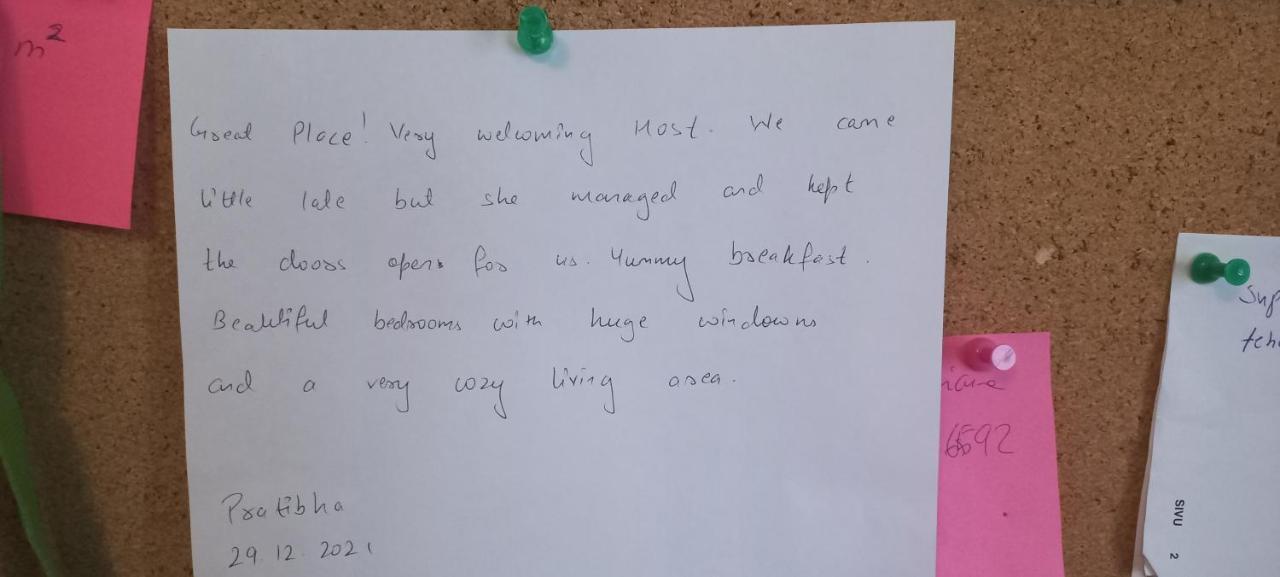 m²
Great Place! Very welcoming Host. We came
little late but she managed and kept
the doors open for us. Yummy breakfast.
Beautiful bedrooms with huge windowns
and a very cozy living area.
Pratibha
29.12.2021
6592
SIVU 2